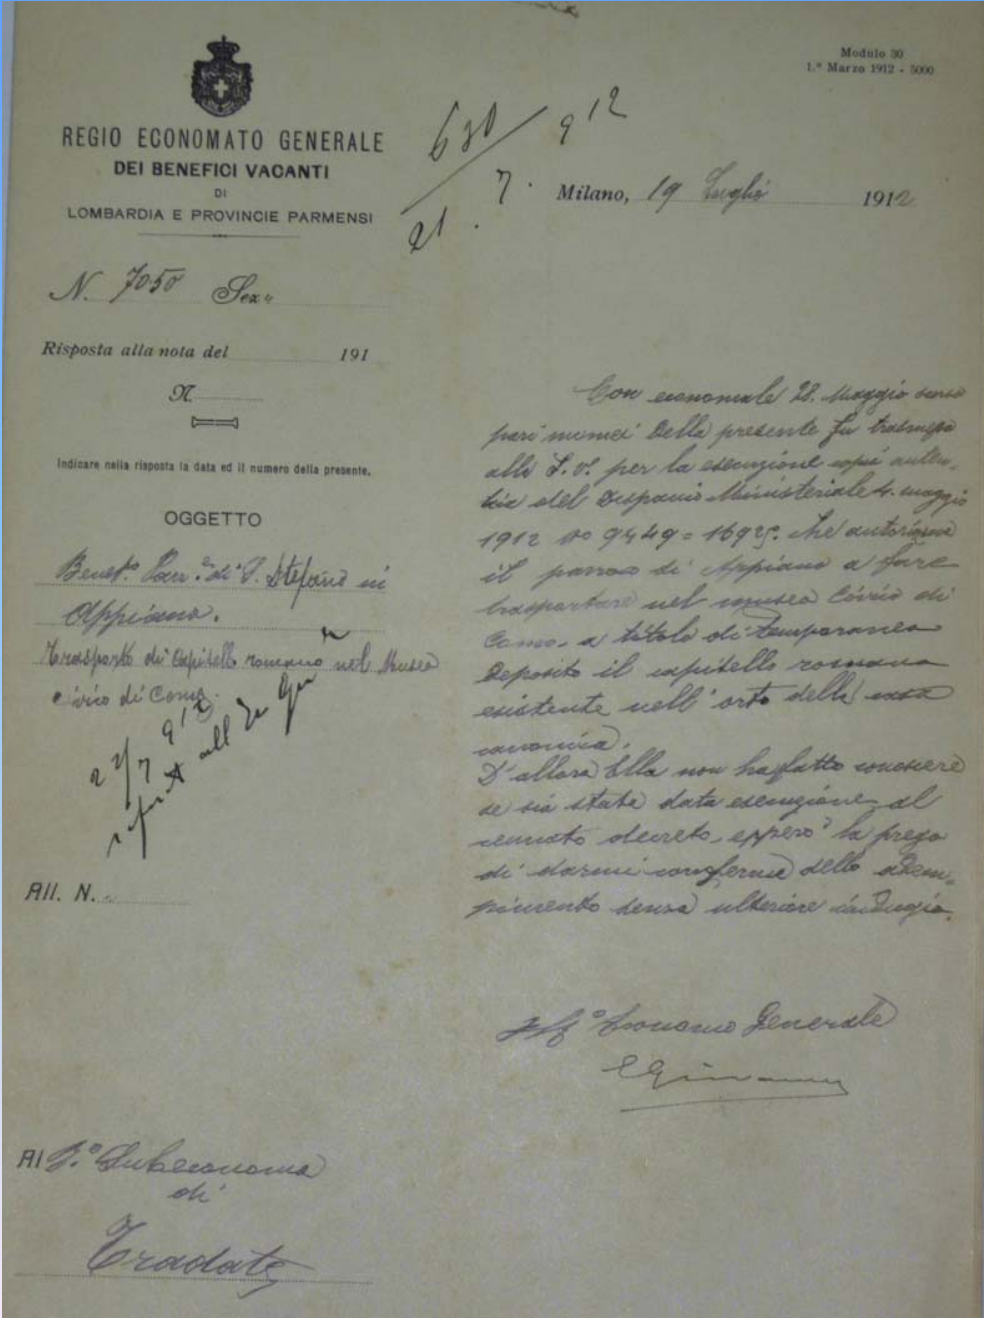 Modulo 30
1.º Marzo 1912 - 5000
REGIO ECONOMATO GENERALE
DEI BENEFICI VACANTI
DI
LOMBARDIA E PROVINCIE PARMENSI
630 / 912
21 . 7 .
Milano, 19 Luglio 1912
N. 7050 Sez.
Risposta alla nota del 191
N.
Indicare nella risposta la data ed il numero della presente.
OGGETTO
Benef.º Parr.le di S. Stefano in
Appiano.
Trasporto di Capitello romano nel Museo
Civico di Como.
22/7 912
All. N.
Con economale 28. Maggio
pari numeri della presente fu trasmessa
alla S. V. per la esecuzione copia auten-
tica del Dispaccio Ministeriale 4. maggio
1912 No 9449 = 16925. che autorizzava
il parroco di Appiano a fare
trasportare nel museo Civico di
Como, a titolo di temporaneo
deposito il capitello romano
esistente nell'orto della casa
canonica.
D'allora Ella non ha fatto conoscere
se sia stata data esecuzione al
cennato decreto, epperò la prego
di darmi conferma dello adem-
pimento senza ulteriore indugio.
Economo Generale
Al R.º Subeconomo
di
Tradate